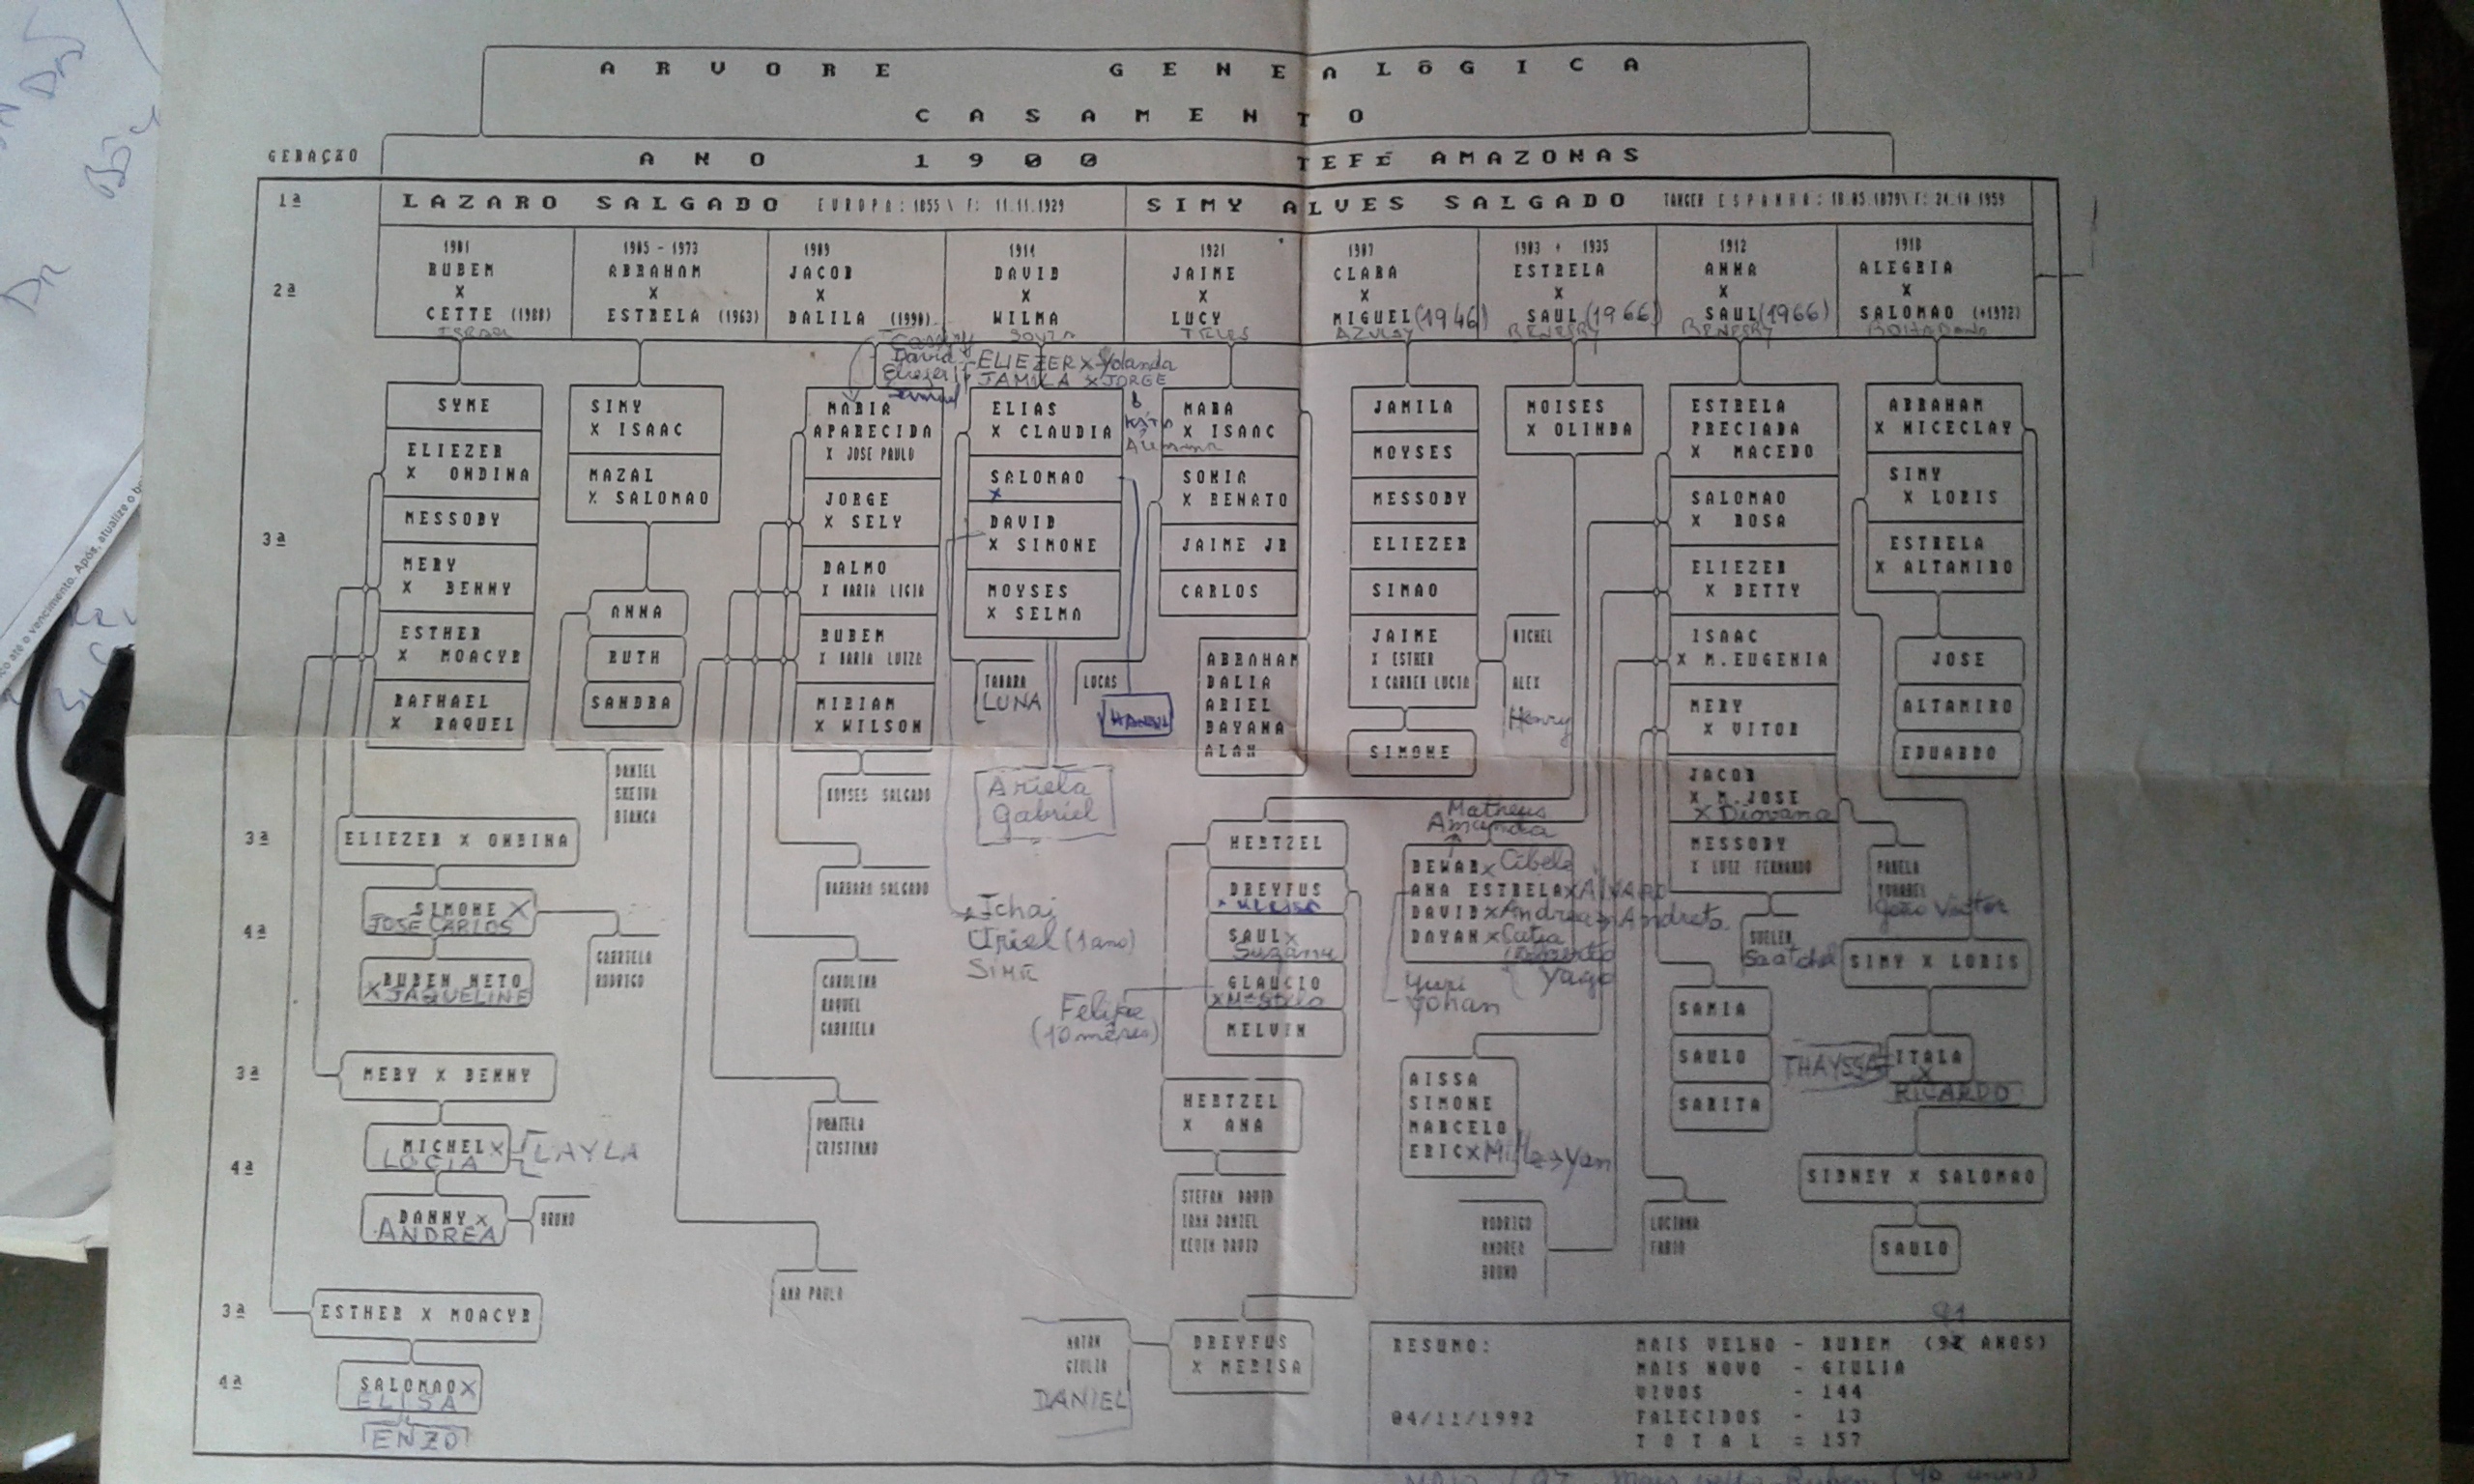 ARVORE GENEALÓGICA
CASAMENTO
GERAÇÃO
ANO 1900 TEFÉ AMAZONAS
1ª
LAZARO SALGADO EUROPA: 1855\ F: 11.11.1929
SIMY ALVES SALGADO TANGER ESPANHA: 18.05.1879\ F: 24.10.1959
2ª
1901
RUBEM
X
CETTE (1988)
ISRAEL
1905 - 1973
ABRAHAM
X
ESTRELA (1963)
1909
JACOB
X
DALILA (1990)
1914
DAVID
X
WILMA
SOUZA
1921
JAIME
X
LUCY
TELES
1907
CLARA
X
MIGUEL (1946)
AZULAY
1903 + 1935
ESTRELA
X
SAUL (1966)
BENESBY
1912
ANNA
X
SAUL (1966)
BENESBY
1918
ALEGRIA
X
SALOMAO (+1972)
David
ELIEZER X Yolanda
JAMILA X JORGE
3ª
SYME
ELIEZER
X ONDINA
MESSODY
MERY
X BENNY
ESTHER
X MOACYR
RAFHAEL
X RAQUEL
SIMY
X ISAAC
MAZAL
X SALOMAO
ANNA
RUTH
SANDRA
DANIEL
BIANCA
MARIA
APARECIDA
X JOSE PAULO
JORGE
X SELY
DALMO
X MARIA LIGIA
RUBEM
X MARIA LUIZA
MIRIAM
X WILSON
MOYSES SALGADO
BARBARA SALGADO
CAROLINA
RAQUEL
GABRIELA
DANIELA
CRISTIANO
ANA PAULA
ELIAS
X CLAUDIA
SALOMAO
X
DAVID
X SIMONE
MOYSES
X SELMA
TAMARA
LUNA
LUCAS
Ariela
Gabriel
Uriel (1 ano)
MARA
X ISAAC
SONIA
X RENATO
JAIME JR
CARLOS
ABRAHAM
DALIA
ARIEL
DAYANA
ALAN
JAMILA
MOYSES
MESSODY
ELIEZER
SIMAO
JAIME
X ESTHER
X CARMEN LUCIA
MICHEL
ALEX
Henry
SIMONE
MOISES
X OLINDA
ESTRELA
PRECIADA
X MACEDO
SALOMAO
X ROSA
ELIEZER
X BETTY
ISAAC
X M.EUGENIA
MERY
X VITOR
JACOB
X M.JOSE
X Diovana
MESSODY
X LUIZ FERNANDO
ABRAHAM
X NICECLAY
SIMY
X LORIS
ESTRELA
X ALTAMIRO
JOSE
ALTAMIRO
EDUARDO
3ª
ELIEZER X ONDINA
4ª
SIMONE X
JOSE CARLOS
GABRIELA
RODRIGO
RUBEM NETO
X JAQUELINE
3ª
MERY X BENNY
4ª
MICHEL X
LUCIA
LAYLA
DANNY X
ANDREA
BRUNO
3ª
ESTHER X MOACYR
4ª
SALOMAO X
ELISA
ENZO
HERTZEL
DREYFUS
SAUL X
Suzana
GLAUCIO
MELVIN
Felipe
(10 meses)
HERTZEL
X ANA
STEFAN DAVID
IANN DANIEL
KEVIN DAVID
DREYFUS
X MERISA
NATAN
GIULIA
DANIEL
Matheus
Amanda
X Cibele
ANA ESTRELA X ALVARO
DAVID X Andrea
DAYAN X Catia
Yago
Yuri
Yohan
AISSA
SIMONE
MARCELO
ERIC
Yan
RODRIGO
ANDREA
BRUNO
LUCIANA
FABIO
SUELEN
SAMIA
SAULO
SARITA
João Victor
SIMY X LORIS
THAYSSA
ITALA
X
RICARDO
SIDNEY X SALOMAO
SAULO
RESUMO:
MAIS VELHO - RUBEM (92 ANOS)
91
MAIS NOVO - GIULIA
VIVOS - 144
04/11/1992
FALECIDOS - 13
TOTAL = 157